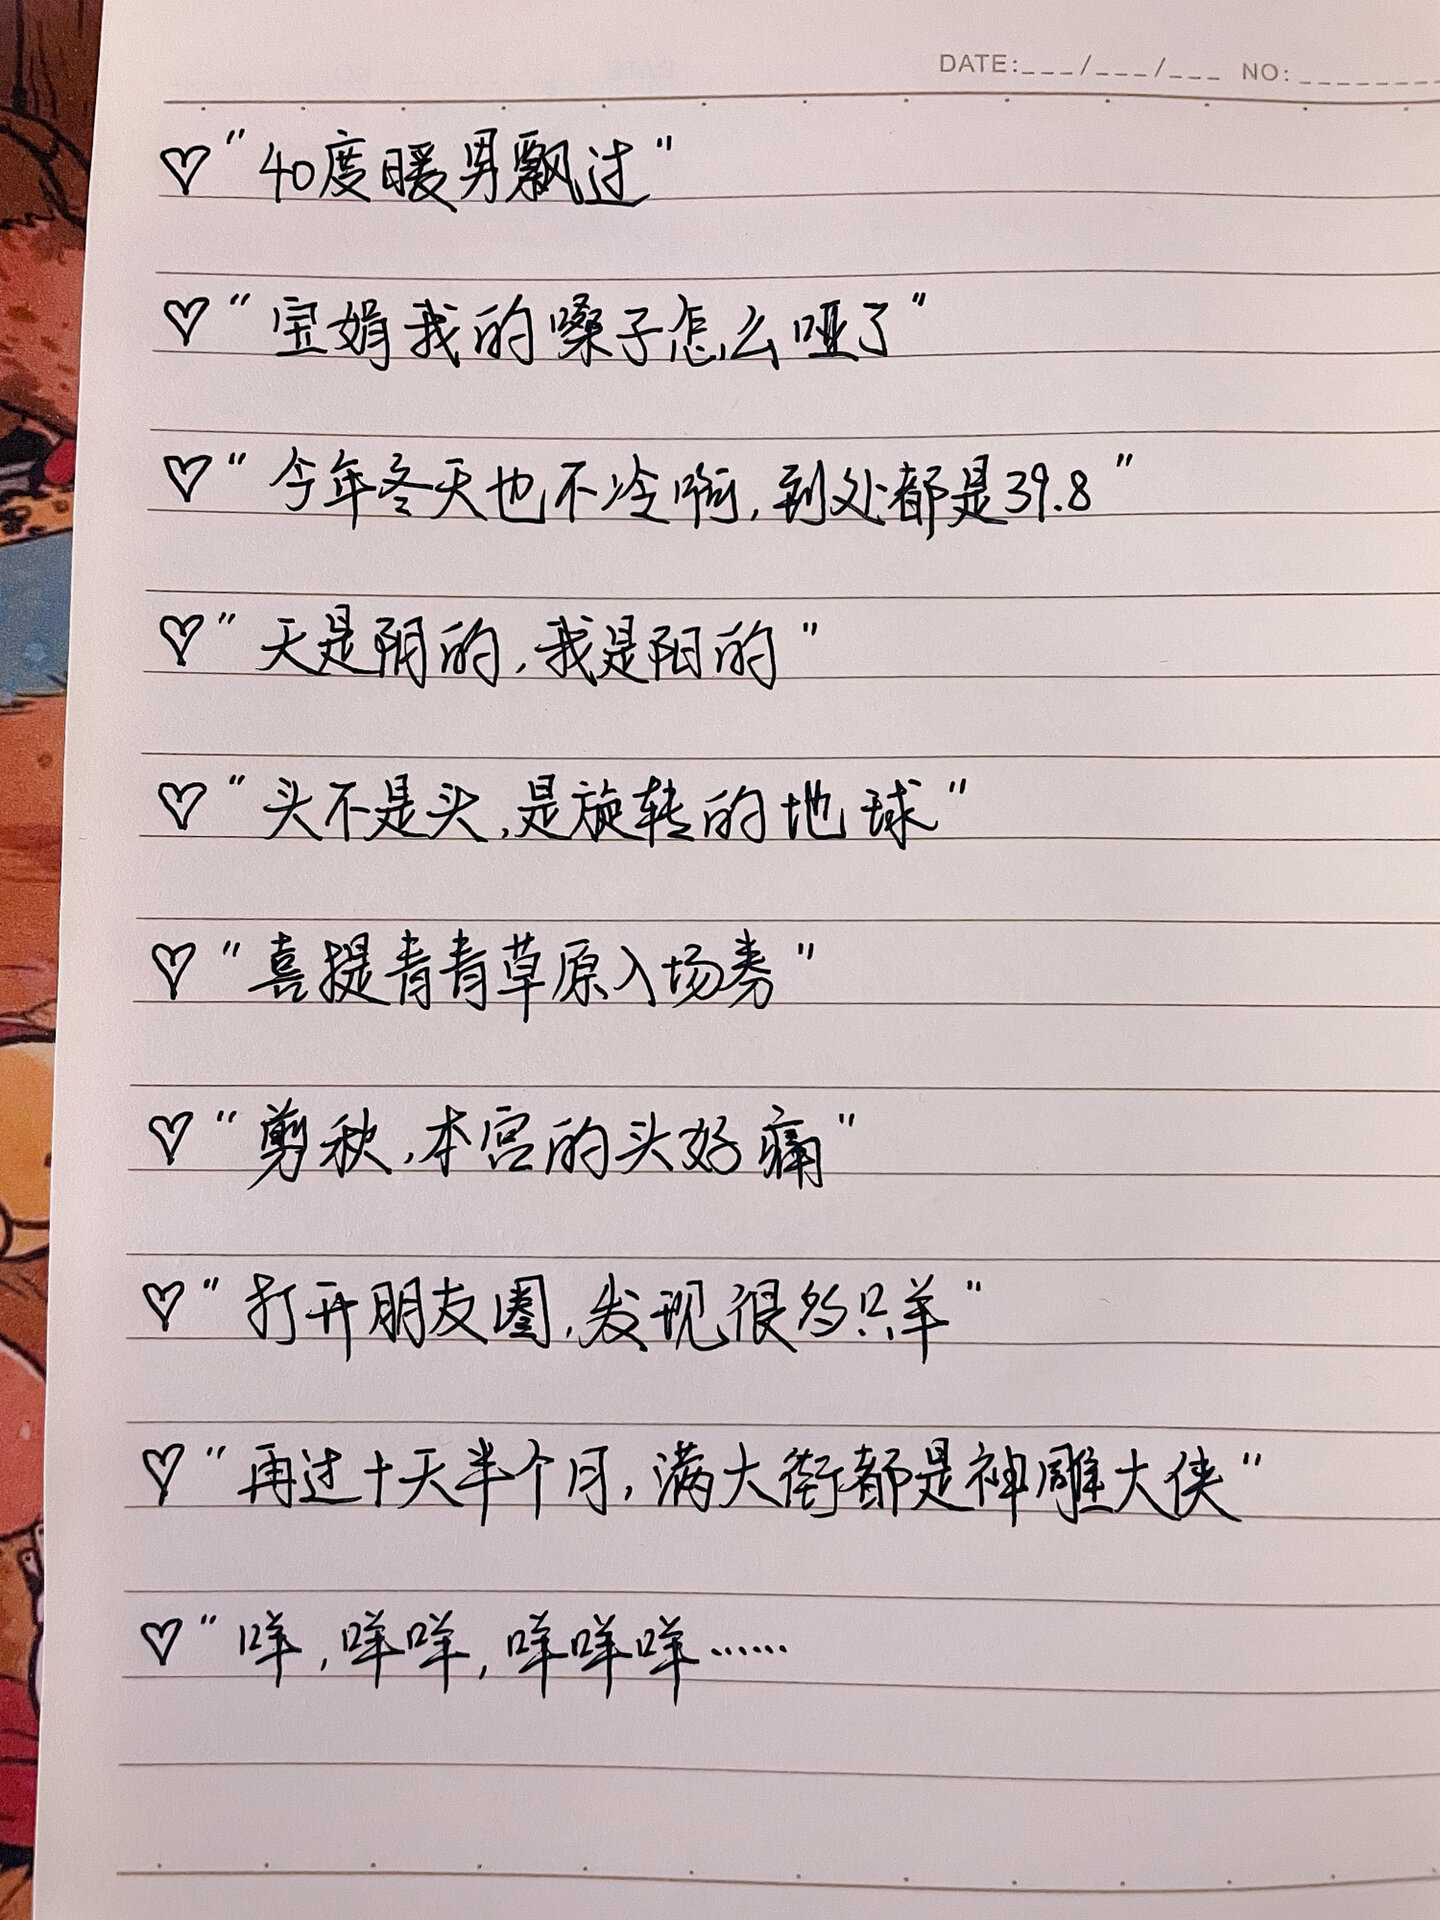 DATE:___/___/___ NO:_______
♡"40度暖男飘过"
♡"宝娟我的嗓子怎么哑了"
♡"今年冬天也不冷啊,到处都是39.8"
♡"天是阴的,我是阳的"
♡"头不是头,是旋转的地球"
♡"喜提青青草原入场券"
♡"剪秋,本宫的头好痛"
♡"打开朋友圈,发现很多只羊"
♡"再过十天半个月,满大街都是神雕大侠"
♡"咩,咩咩,咩咩咩……